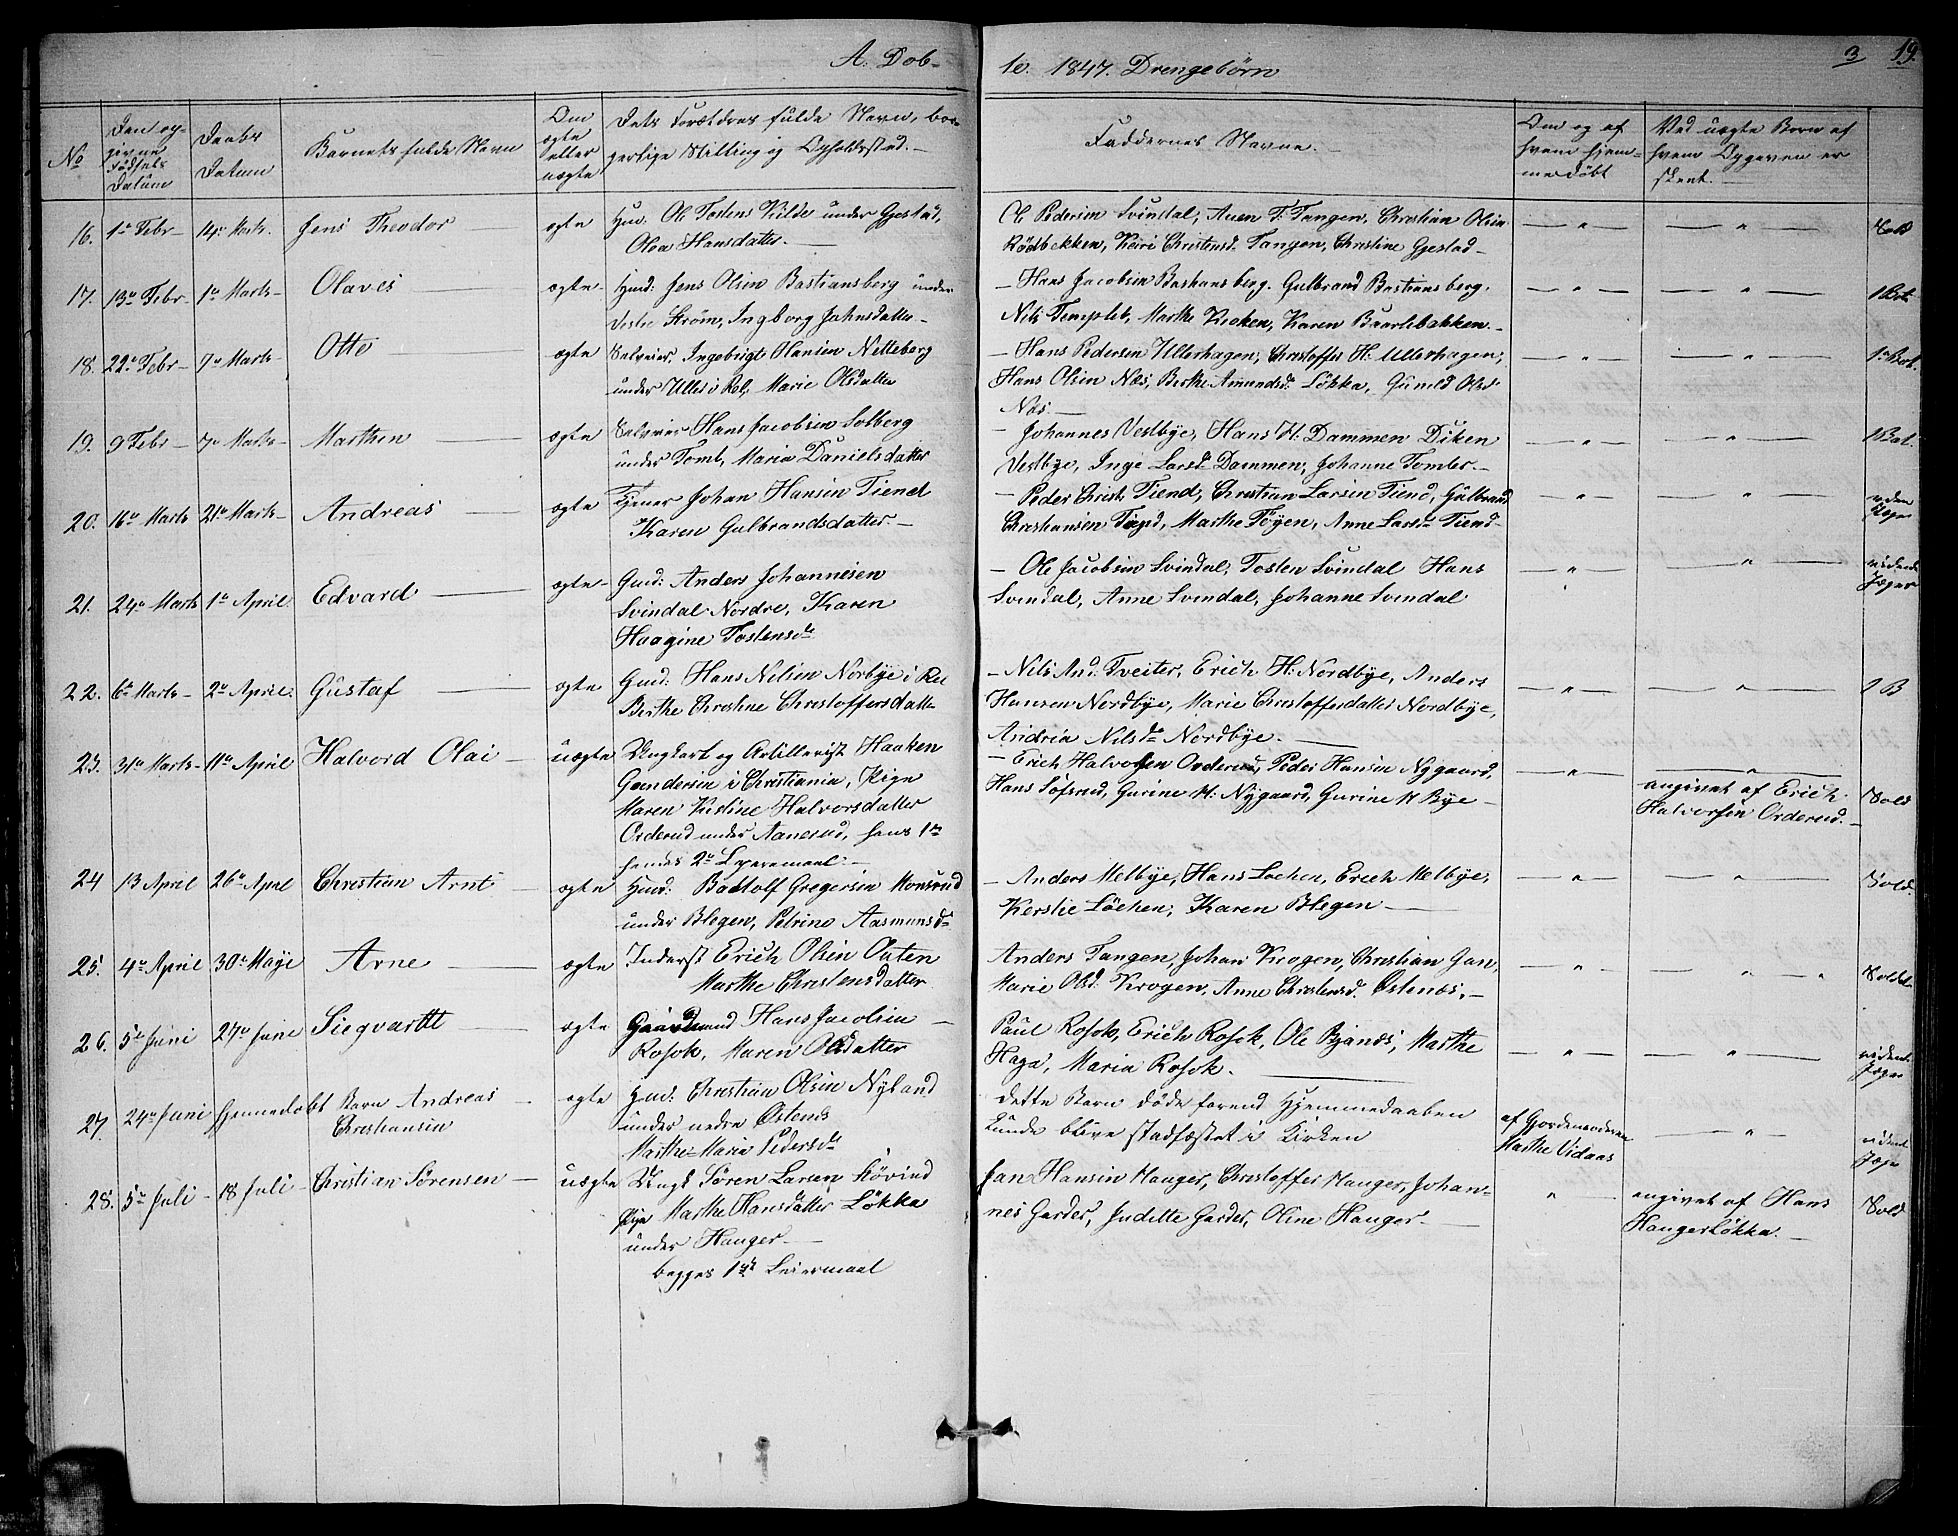 A. Döb-
te. 1847. Drengebörn
3 19.
No
Den op-
givne
Födsels
Datum
Daabs
Datum
Barnets fulde Navn
Om
ægte
eller
uægte
Dets Forældres fulde Navn, bor-
gerlige Stilling og Opholdssted.
Faddernes Navne.
Om og af
hvem hjem-
medöbt
Ved uægte Born af
hvem Opgaven er
skeet.
16. 1ste Febr 14de Marts Jens Theodor ægte Hmd. Ole Tostens Kilde under Gjestad,
Oloa Hansdatter.
Ole Pedersen Svindal, Auen T. Tangen, Christian Olsen
Rödbekken, Keiri Christensd. Tangen, Christine Gjestad
17. 13de Febr 1ste Marts Olaves ægte Hmd: Jens Olsen Bastiansberg under
Vestre Ström, Ingborg Jahnsdatter
Hans Jacobsen Bastiansberg, Gulbrand Bastiansberg,
Nils Templet, Marthe Kroken, Karen Baarlibakken
18. 22de Febr 7de Marts Otto ægte Selveier Ingebrigt Hansen Netteberg
under Ulleri Rel; Marie Olsdatter
Hans Pedersen Ullerhagen, Christoffer H: Ullerhagen,
Hans Olsen Næs, Berthe Amundsd. Lökka, Gunild Olsd
Næs.
19. 9 Febr 7de Marts Marthin ægte Selveier Hans Jacobsen Solberg
under Tomt, Maria Danielsdatter
Johannes Vestbye, Hans H: Dammen Diken
Vestbye, Inge Larsd Dammen, Johanne Tomter.
1 Bat.
20. 16de Marts 21de Marts Andreas ægte Tjener Johan Hansen Tiend
Karen Gulbrandsdatter
Peder Christ. Tiend, Christian Larsen Tiend, Gulbrand
Christiansen Tiend, Marthe Töyen, Anne Larsd Tiend
21. 24de Marts 1ste April Edvard ægte Gmd: Anders Johannesen
Svindal Nordre, Karen
Haagine Tostensd
Ole Jacobsen Svindal, Tosten Svindal Hans
Svendal, Anne Svendal, Johanne Svendal
22. 6te Marts 2den April Gustaf ægte Gmd: Hans Nilsen Norbye i Rel
Berthe Christine Christoffersdatter
Nils And. Tveiter, Erich H: Nordbye, Anders
Hansen Nordbye, Marie Christoffersdatter Nordbye,
Andria Nilsd Nordbye.
23. 31te Marts 11te April Halvord Olai uægte Ungkarl og Artillerist Haaken
Gundersen i Christiania, Pige
Maren Kirstine Halvorsdatter
Orderud under Aanerud, hans 1ste
hendes 2de Leyermaal.
Erich Halvorsen Orderud, Peder Hansen Nygaard,
Hans Sofsrud, Gurine M: Nygaard, Gurine M Bye
angivet af Erich
Halvorsen Orderud.
Sold
24 13 April 26de April Christian Arnt ægte Hmd: Badtolf Gregersen Monsrud
under Blegen, Petrine Aasmundsd
Anders Melbye, Hans Lochen, Erich Melbye,
Kerstie Löchen, Karen Blegen
Sold.
25. 4de April 30de Maye Arne ægte Inderst Erich Olsen Outen
Marthe Christensdatter
Anders Tangen, Johan Krogen, Christian Gan,
Marie Olsd. Krogen, Anne Christensd. Østenæs,
26. 5te Juni 27de Juni Siegvardt ægte Gaardmand Hans Jacobsen
Rosok, Maren Olsdatter
Paul Rosok, Erich Rosok, Ole Bjanæs, Marthe
Haga, Maria Rosok.
27. 24de Juni hjemmedöbt Barn Andreas
Christiansen ægte Hmd: Christian Olsen Nyland
under nedre Østenæs
Marthe Maria Pedersd
Dette Barn döde forend Hjemmedaaben
kunde blive stadfæstet i Kirken
af Gjordemoderen
Marthe Vidnæs
28. 5te Juli 18 Juli Christian Sörensen uægte Ungk Sören Larsen Hövind
Pige Marthe Hansdatter Lökka
under Hauger
begges 1ste Leiermaal
Jan Hansen Hauger, Christoffer Hauger, Johan-
nes Garder, Juditte Garder, Oline Hauger
angivet af Hans
Haugerlökka.
Sold